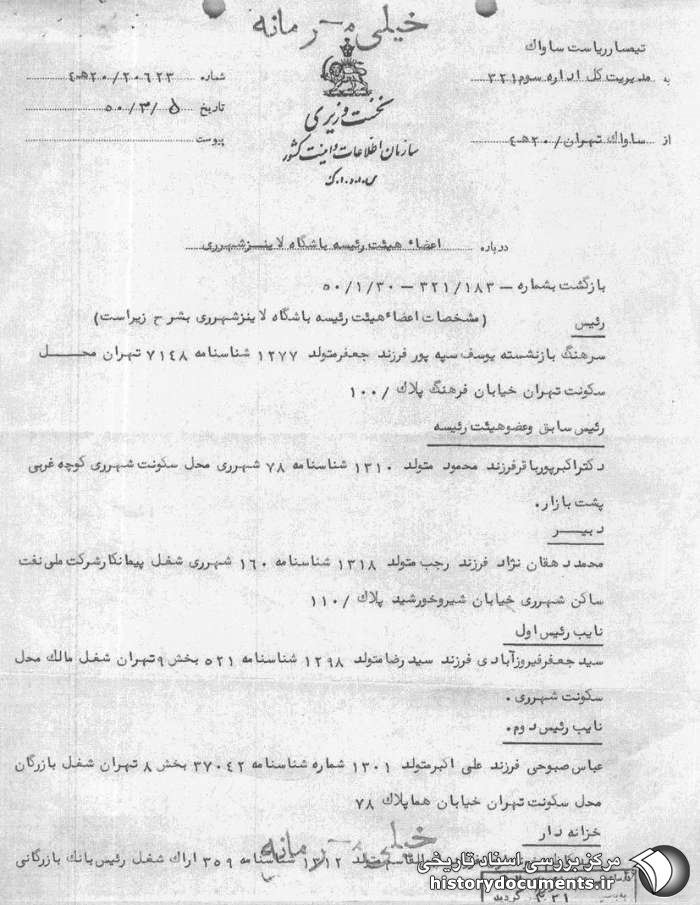 خیلی محرمانه
تیمسار ریاست ساواک
به مدیریت کل اداره سوم ۳۲۱
شماره ۲۰/۲۰٦۲۳هـ٤
تاریخ ۵۰/۳/۵
نخست وزیری
پیوست
از ساواک تهران/۲۰هـ٤
سازمان اطلاعات و امنیت کشور
س.ا.و.ا.ک
درباره اعضاء هیئت رئیسه باشگاه لاینز شهرری
بازگشت بشماره – ۳۲۱/۱۸۳ – ۵۰/۱/۳۰
رئیس (مشخصات اعضاء هیئت رئیسه باشگاه لاینز شهرری بشرح زیر است)
سرهنگ بازنشسته یوسف سپه پور فرزند جعفر متولد ۱۲۷۷ شناسنامه ۷۱٤۸ تهران محل
سکونت تهران خیابان فرهنگ پلاک /۱۰۰
رئیس سابق وعضو هیئت رئیسه
دکتر اکبر پورباقر فرزند محمود متولد ۱۳۱۰ شناسنامه ۷۸ شهرری محل سکونت شهرری کوچه غربی
پشت بازار.
دبیر
محمد دهقان نژاد فرزند رجب متولد ۱۳۱۸ شناسنامه ۱٦۰ شهرری شغل پیمانکار شرکت ملی نفت
ساکن شهرری خیابان شیروخورشید پلاک /۱۱۰
نایب رئیس اول
سید جعفر فیروزآبادی فرزند سید رضا متولد ۱۲۹۸ شناسنامه ۵۲۱ بخش ۹ تهران شغل مالک محل
سکونت شهرری.
نایب رئیس دوم.
عباس صبوحی فرزند علی اکبر متولد ۱۳۰۱ شماره شناسنامه ۳۷۰٤۲ بخش ۸ تهران شغل بازرگان
محل سکونت تهران خیابان هما پلاک ۷۸
خزانه دار
خیلی محرمانه
متولد ۱۳۱۲ شناسنامه ۳۵۹ اراک شغل رئیس بانک بازرگانی
مرکز بررسی اسناد تاریخی
historydocuments.ir
۳۲۱ گردید